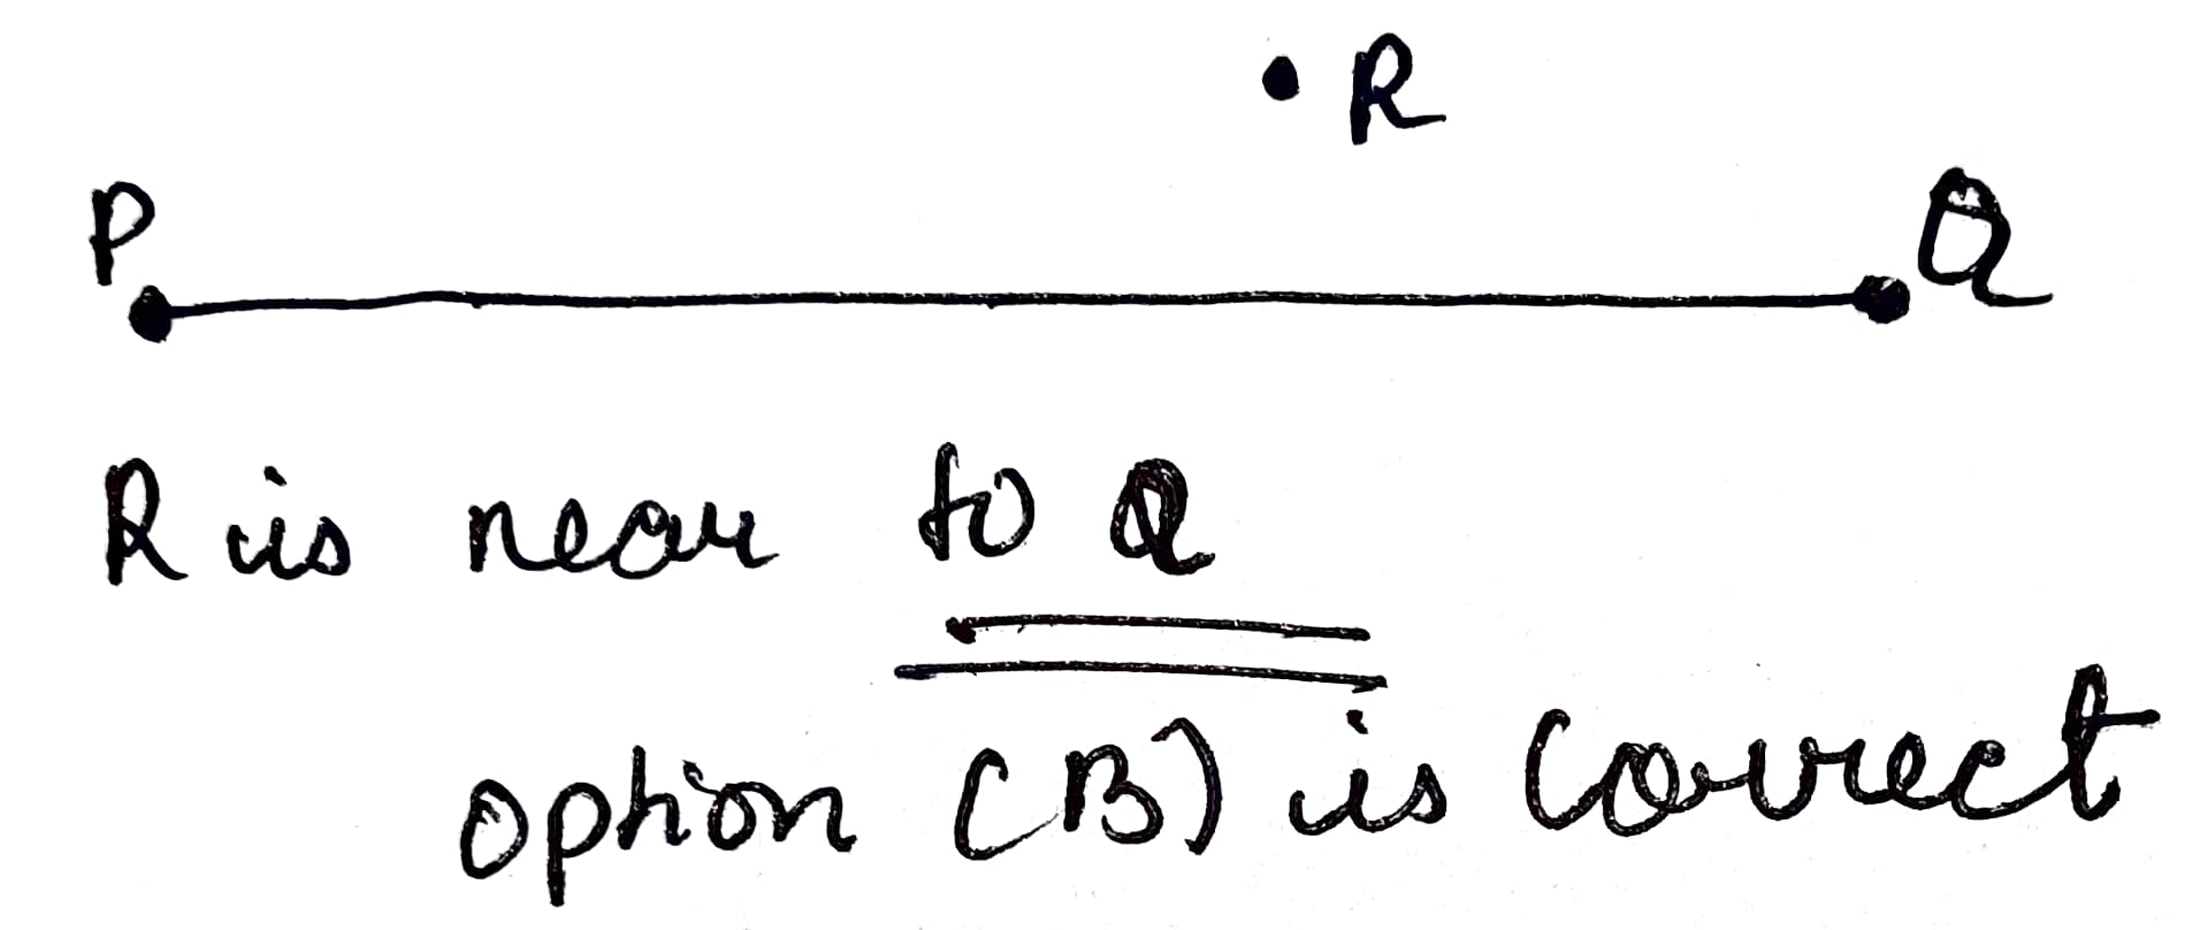 R
P
Q
R is near to Q
option (B) is correct